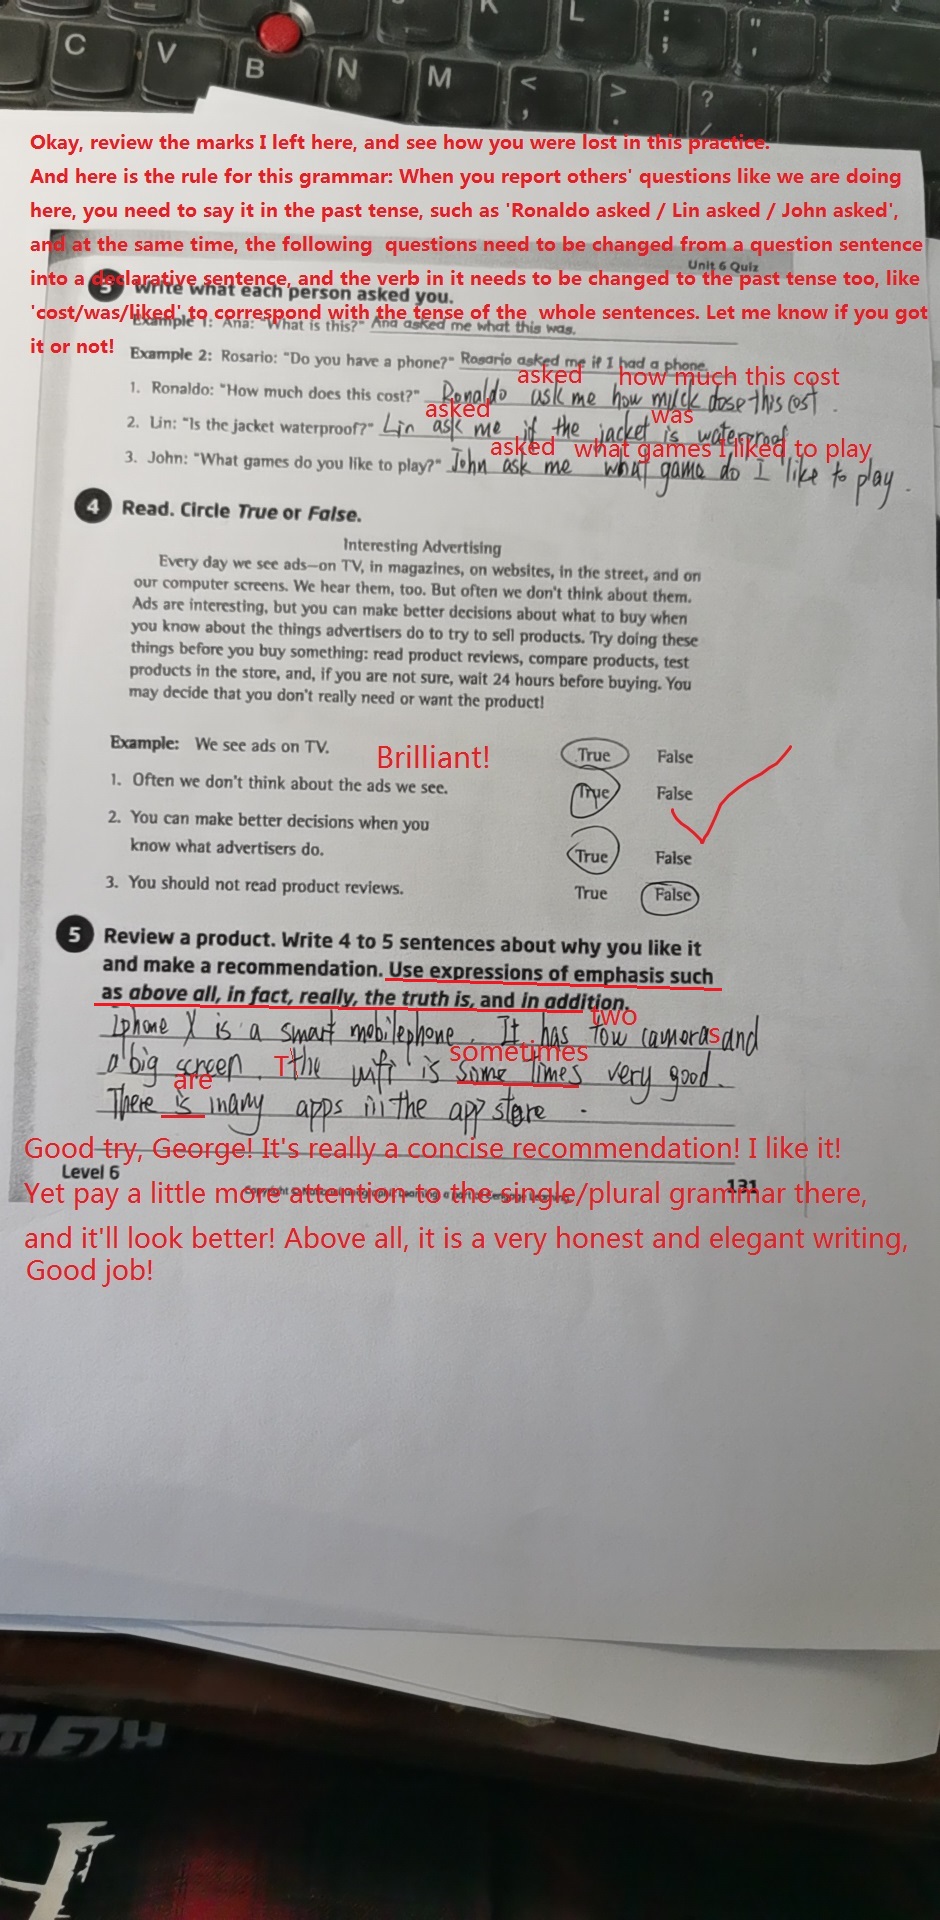 K L : ; " '
C V B N M < , > . ? /
Okay, review the marks I left here, and see how you were lost in this practice.
And here is the rule for this grammar: When you report others' questions like we are doing
here, you need to say it in the past tense, such as 'Ronaldo asked / Lin asked / John asked',
and at the same time, the following questions need to be changed from a question sentence
Unit 6 Quiz
into a declarative sentence, and the verb in it needs to be changed to the past tense too, like
3 Write what each person asked you.
'cost/was/liked' to correspond with the tense of the whole sentences. Let me know if you got
Example 1: Ana: "What is this?" Ana asked me what this was.
it or not!
Example 2: Rosario: "Do you have a phone?" Rosario asked me if I had a phone.
asked how much this cost
1. Ronaldo: "How much does this cost?" Ronaldo ask me how much dose this cost .
asked was
2. Lin: "Is the jacket waterproof?" Lin ask me if the jacket is waterproof
asked what games I liked to play
3. John: "What games do you like to play?" John ask me what game do I like to play .
4 Read. Circle True or False.
Interesting Advertising
Every day we see ads—on TV, in magazines, on websites, in the street, and on
our computer screens. We hear them, too. But often we don't think about them.
Ads are interesting, but you can make better decisions about what to buy when
you know about the things advertisers do to try to sell products. Try doing these
things before you buy something: read product reviews, compare products, test
products in the store, and, if you are not sure, wait 24 hours before buying. You
may decide that you don't really need or want the product!
Example: We see ads on TV. True False
Brilliant!
1. Often we don't think about the ads we see. True False
2. You can make better decisions when you
know what advertisers do. True False
3. You should not read product reviews. True False
5 Review a product. Write 4 to 5 sentences about why you like it
and make a recommendation. Use expressions of emphasis such
as above all, in fact, really, the truth is, and in addition.
two
Iphone X is a smart mobilephone . It has tow cameras and
sometimes
a big screen . Tthe wifi is some times very good .
are
There is many apps in the app store .
Good try, George! It's really a concise recommendation! I like it!
Level 6
Yet pay a little more attention to the single/plural grammar there,
Copyright © National Geographic Learning, a part of Cengage Learning
131
and it'll look better! Above all, it is a very honest and elegant writing,
Good job!